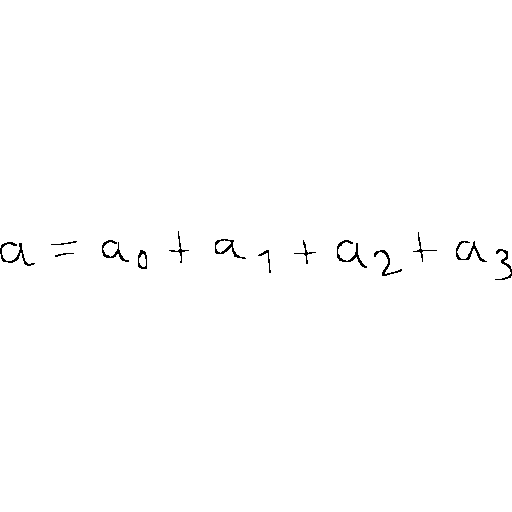 a = a₀ + a₁ + a₂ + a₃